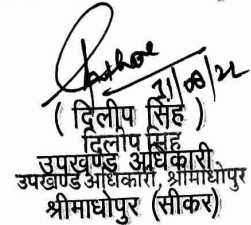 31/08/22
( दिलीप सिंह )
दिलीप सिंह
उपखण्ड अधिकारी
उपखण्ड अधिकारी श्रीमाधोपुर
श्रीमाधोपुर (सीकर)